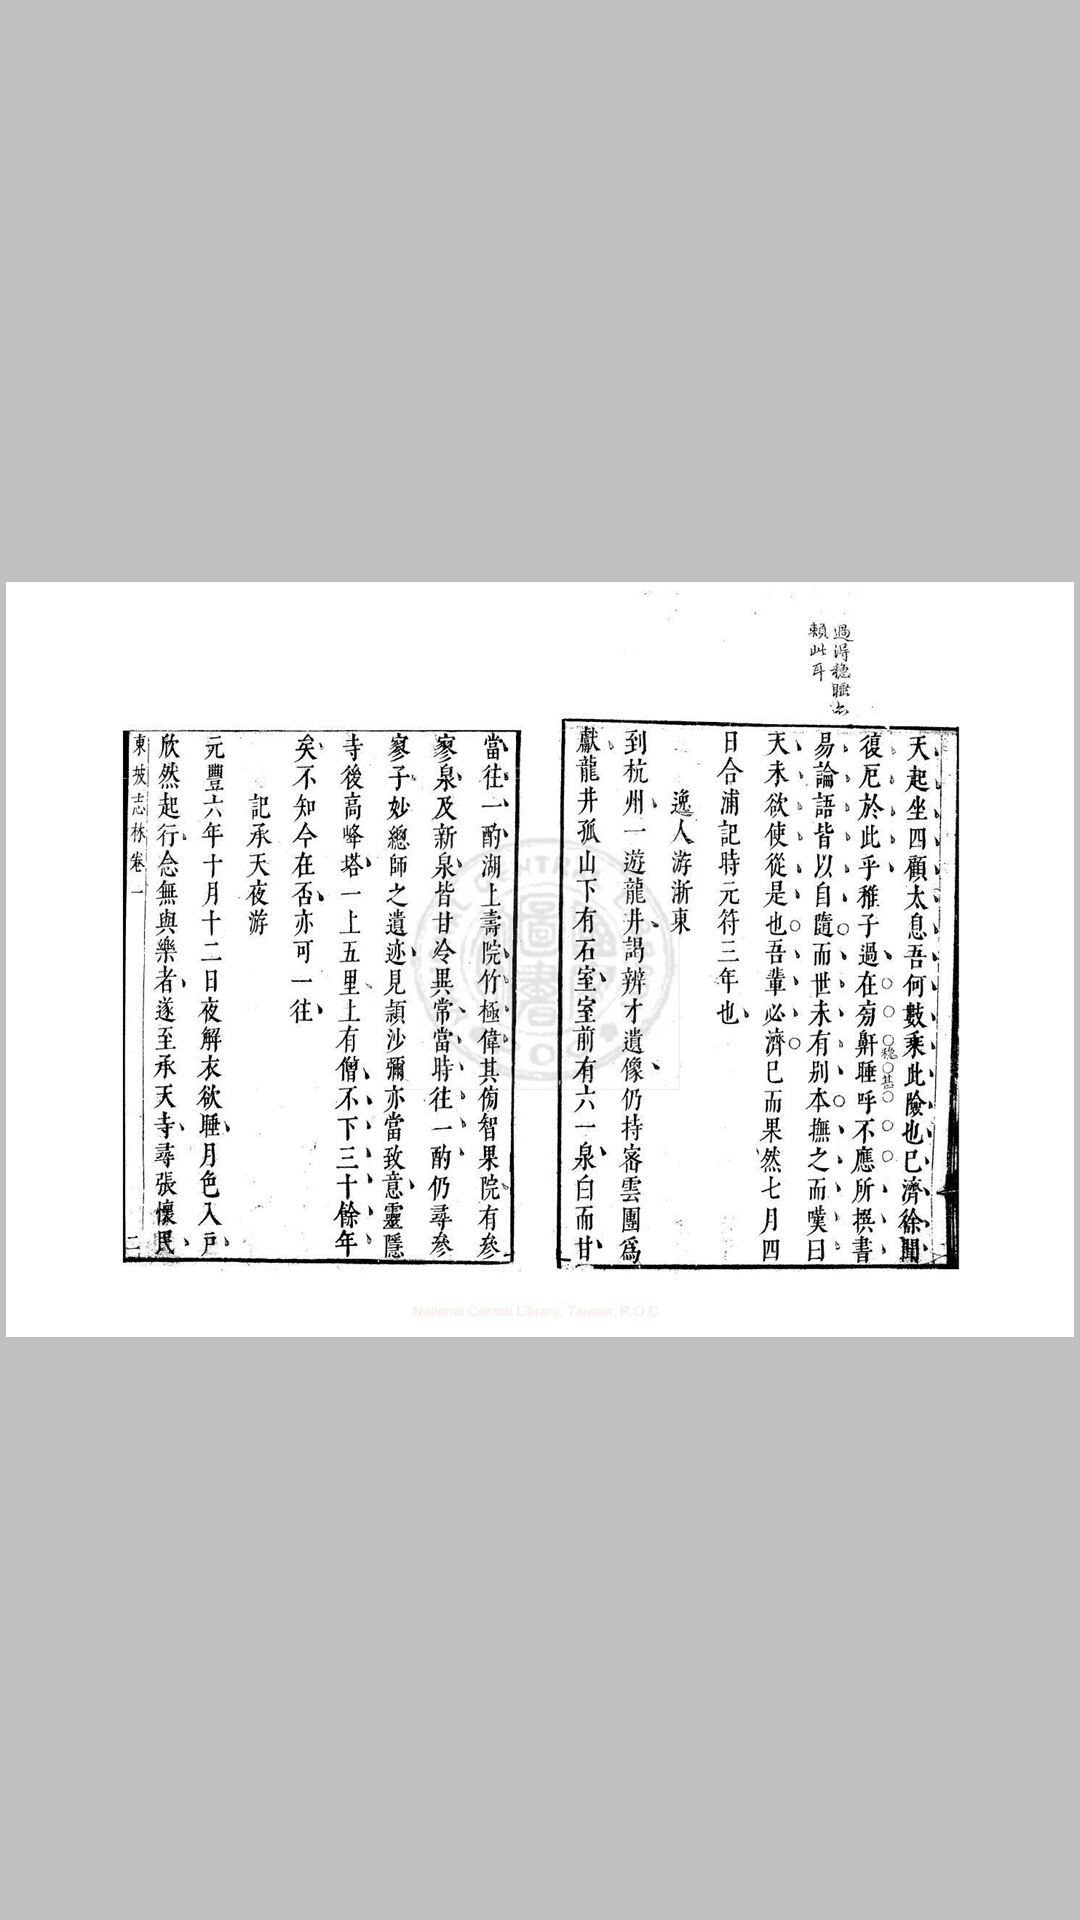 過得穩睡亦
賴此耳
天起坐四顧太息吾何數乘此險也已濟徐聞
復厄於此乎稚子過在旁鼾睡呼不應所撰書
穩甚
易論語皆以自隨而世未有别本撫之而嘆曰
天未欲使從是也吾輩必濟已而果然七月四
日合浦記時元符三年也
逸人游浙東
到杭州一遊龍井謁辨才遺像仍持密雲團爲
獻龍井孤山下有石室室前有六一泉白而甘
當往一酌湖上壽院竹極偉其傍智果院有參
寥泉及新泉皆甘冷異常當時往一酌仍尋參
寥子妙總師之遺迹見頴沙彌亦當致意靈隱
寺後高峰塔一上五里上有僧不下三十餘年
矣不知今在否亦可一往
記承天夜游
元豐六年十月十二日夜解衣欲睡月色入戶
欣然起行念無與樂者遂至承天寺尋張懷民
東坡志林卷一
二
National Central Library, Taiwan, R.O.C